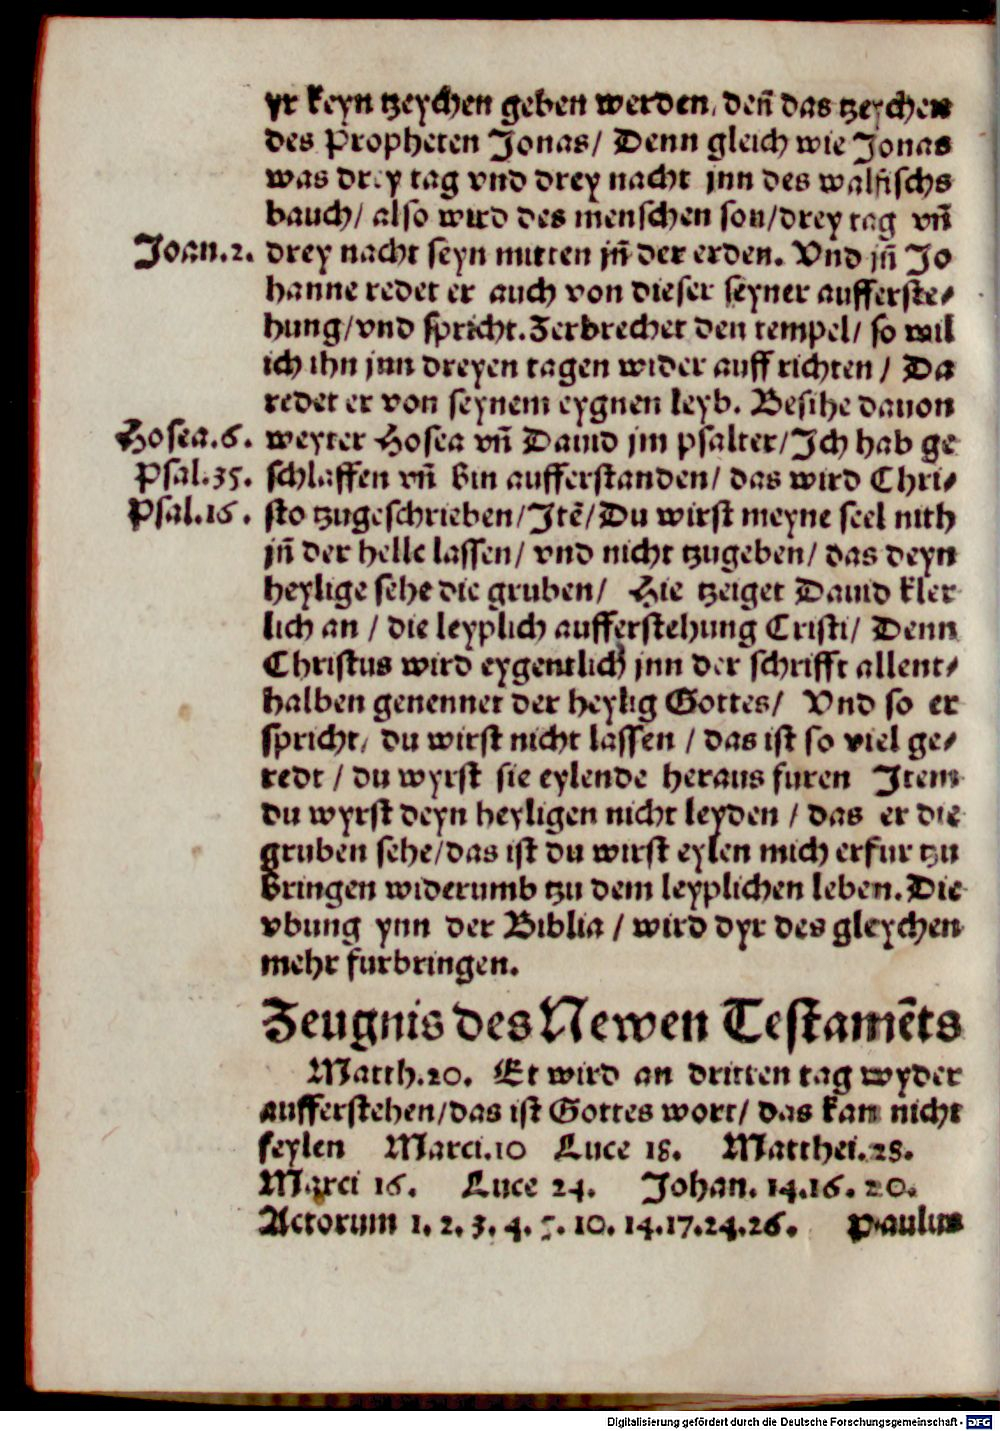 yr keyn tzeychen geben werden, deñ das tzeychen
des Propheten Jonas/ Denn gleich wie Jonas
was drey tag vnd drey nacht jnn des walfischs
bauch/ also wird des menschen son/drey tag vñ
Joan.2. drey nacht seyn mitten jñ der erden. Vnd jñ Jo
hanne redet er auch von dieser seyner aufferste⸗
hung/vnd spricht.Zerbrechet den tempel/ so wil
ich ihn jnn dreyen tagen wider auff richten / Da
redet er von seynem eygnen leyb. Besihe dauon
Hosea.6. weyter Hosea vñ Dauid jm psalter/Ich hab ge
Psal.35. schlaffen vñ bin aufferstanden/ das wird Chri⸗
Psal.16. sto tzugeschrieben/Itē/Du wirst meyne seel nith
jñ der helle lassen/ vnd nicht tzugeben/ das deyn
heylige sehe die gruben/ Hie tzeiget Dauid kler
lich an / die leyplich aufferstehung Cristi/ Denn
Christus wird eygentlich jnn der schrifft allent⸗
halben genennet der heylig Gottes/ Vnd so er
spricht, du wirst nicht lassen / das ist so viel ge⸗
redt / du wyrst sie eylende heraus furen Item
du wyrst deyn heyligen nicht leyden / das er die
gruben sehe/das ist du wirst eylen mich erfur tzu
bringen widerumb tzu dem leyplichen leben. Die
vbung ynn der Biblia / wird dyr des gleychen
mehr furbringen.
Zeugnis des Newen Testamēts
Matth.20. Er wird an dritten tag wyder
aufferstehen/das ist Gottes wort/ das kan nicht
feylen Marci.10 Luce 18. Matthei.28.
Marci 16. Luce 24. Johan. 14.16. 20.
Actorum 1. 2. 3. 4. 5. 10. 14.17.24.26. Paulus
Digitalisierung gefördert durch die Deutsche Forschungsgemeinschaft - DFG